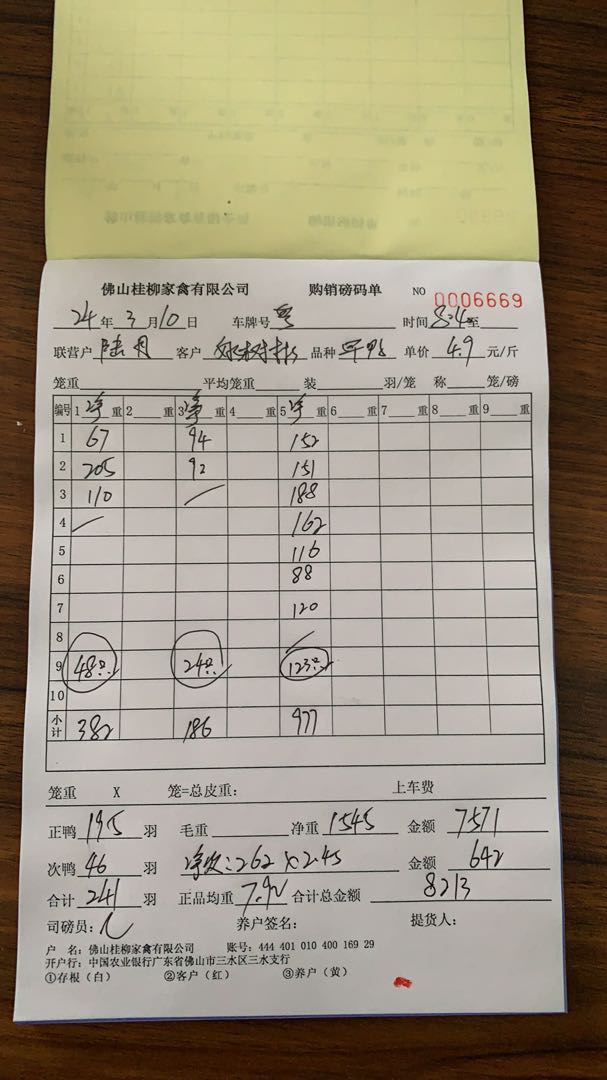 佛山桂柳家禽有限公司 购销磅码单 NO 0006669
24年3月10日 车牌号 粤 时间 8:4 至
联营户 陆月 客户 品种 单价 4.9 元/斤
笼重 平均笼重 装 羽/笼 称 笼/磅
编号 1 净 重 2 重 3 净 重 4 重 5 净 重 6 重 7 重 8 重 9 重
1 67 94 152
2 205 92 151
3 110 188
4 162
5 116
6 88
7 120
8
9 48只 24只 123只
10
小计 382 186 977
笼重 X 笼=总皮重: 上车费
正鸭 195 羽 毛重 净重 1545 金额 7571
次鸭 46 羽 净次:262×2.45 金额 642
合计 241 羽 正品均重 7.92 合计总金额 8213
司磅员: 养户签名: 提货人:
户 名: 佛山桂柳家禽有限公司 账号: 444 401 010 400 169 29
开户行: 中国农业银行广东省佛山市三水区三水支行
①存根(白) ②客户(红) ③养户(黄)